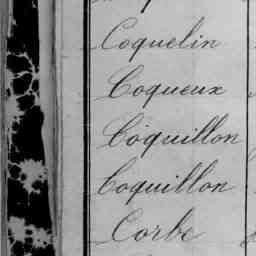 Coquelin
Coqueux
Coquillon
Coquillon
Corbe